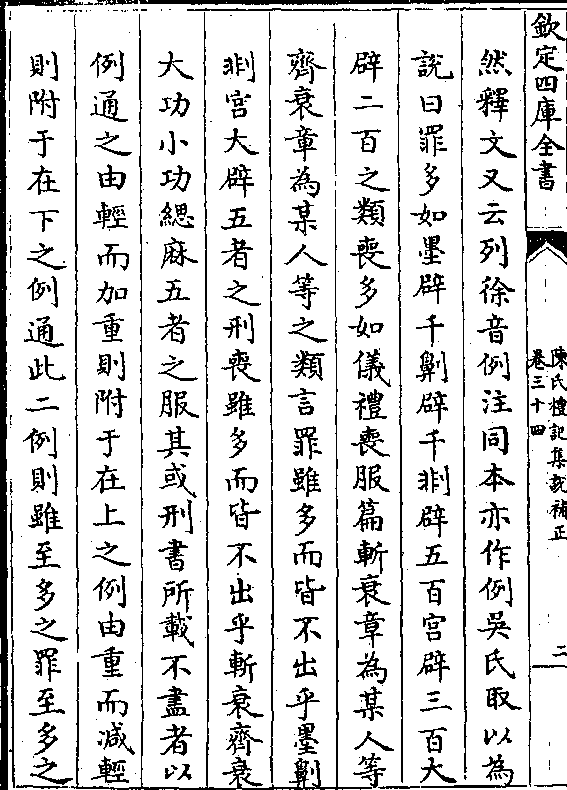 欽定四庫全書
陳氏禮記集說補正
卷三十四
二
然釋文又云列徐音例注同本亦作例吳氏取以為
說曰罪多如墨辟千劓辟千剕辟五百宮辟三百大
辟二百之類喪多如儀禮喪服篇斬衰章為某人等
齊衰章為某人等之類言罪雖多而皆不出乎墨劓
剕宮大辟五者之刑喪雖多而皆不出乎斬衰齊衰
大功小功緦麻五者之服其或刑書所載不盡者以
例通之由輕而加重則附于在上之例由重而減輕
則附于在下之例通此二例則雖至多之罪至多之